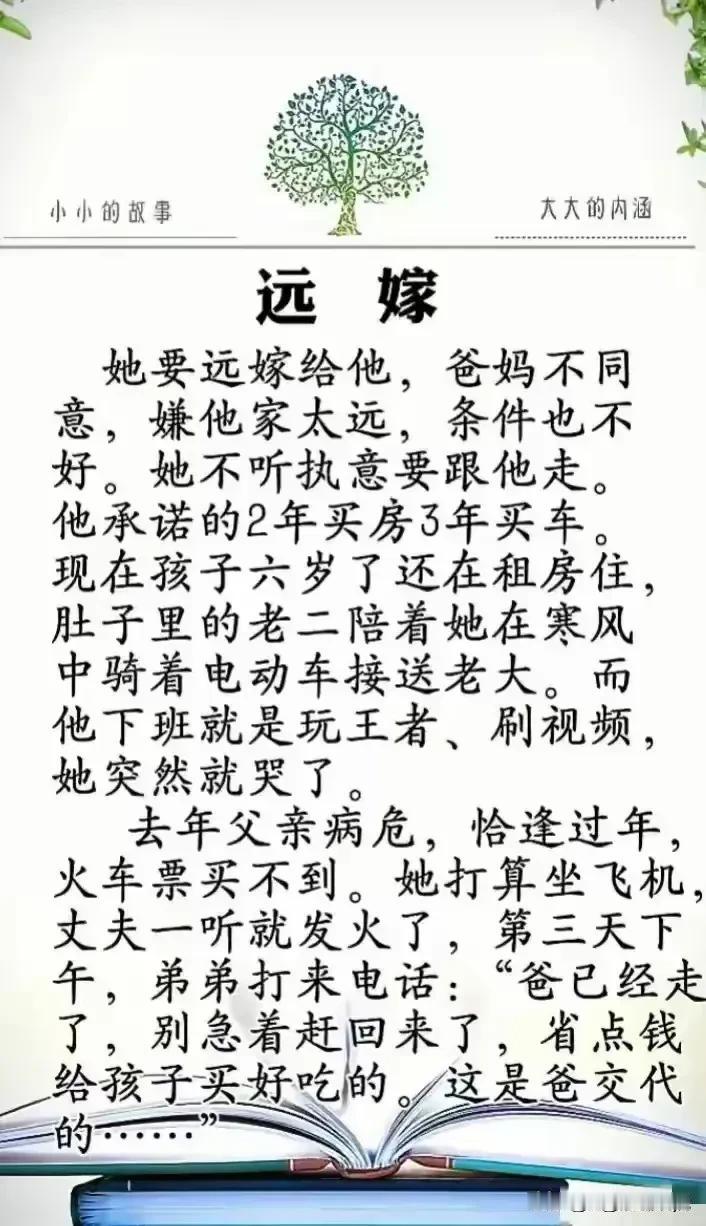 小小的故事
大大的内涵
远 嫁
她要远嫁给他，爸妈不同
意，嫌他家太远，条件也不
好。她不听执意要跟他走。
他承诺的2年买房3年买车。
现在孩子六岁了还在租房住，
肚子里的老二陪着她在寒风
中骑着电动车接送老大。而
他下班就是玩王者、刷视频，
她突然就哭了。
去年父亲病危，恰逢过年，
火车票买不到。她打算坐飞机，
丈夫一听就发火了，第三天下
午，弟弟打来电话：“爸已经走
了，别急着赶回来了，省点钱
给孩子买好吃的。这是爸交代
的……”